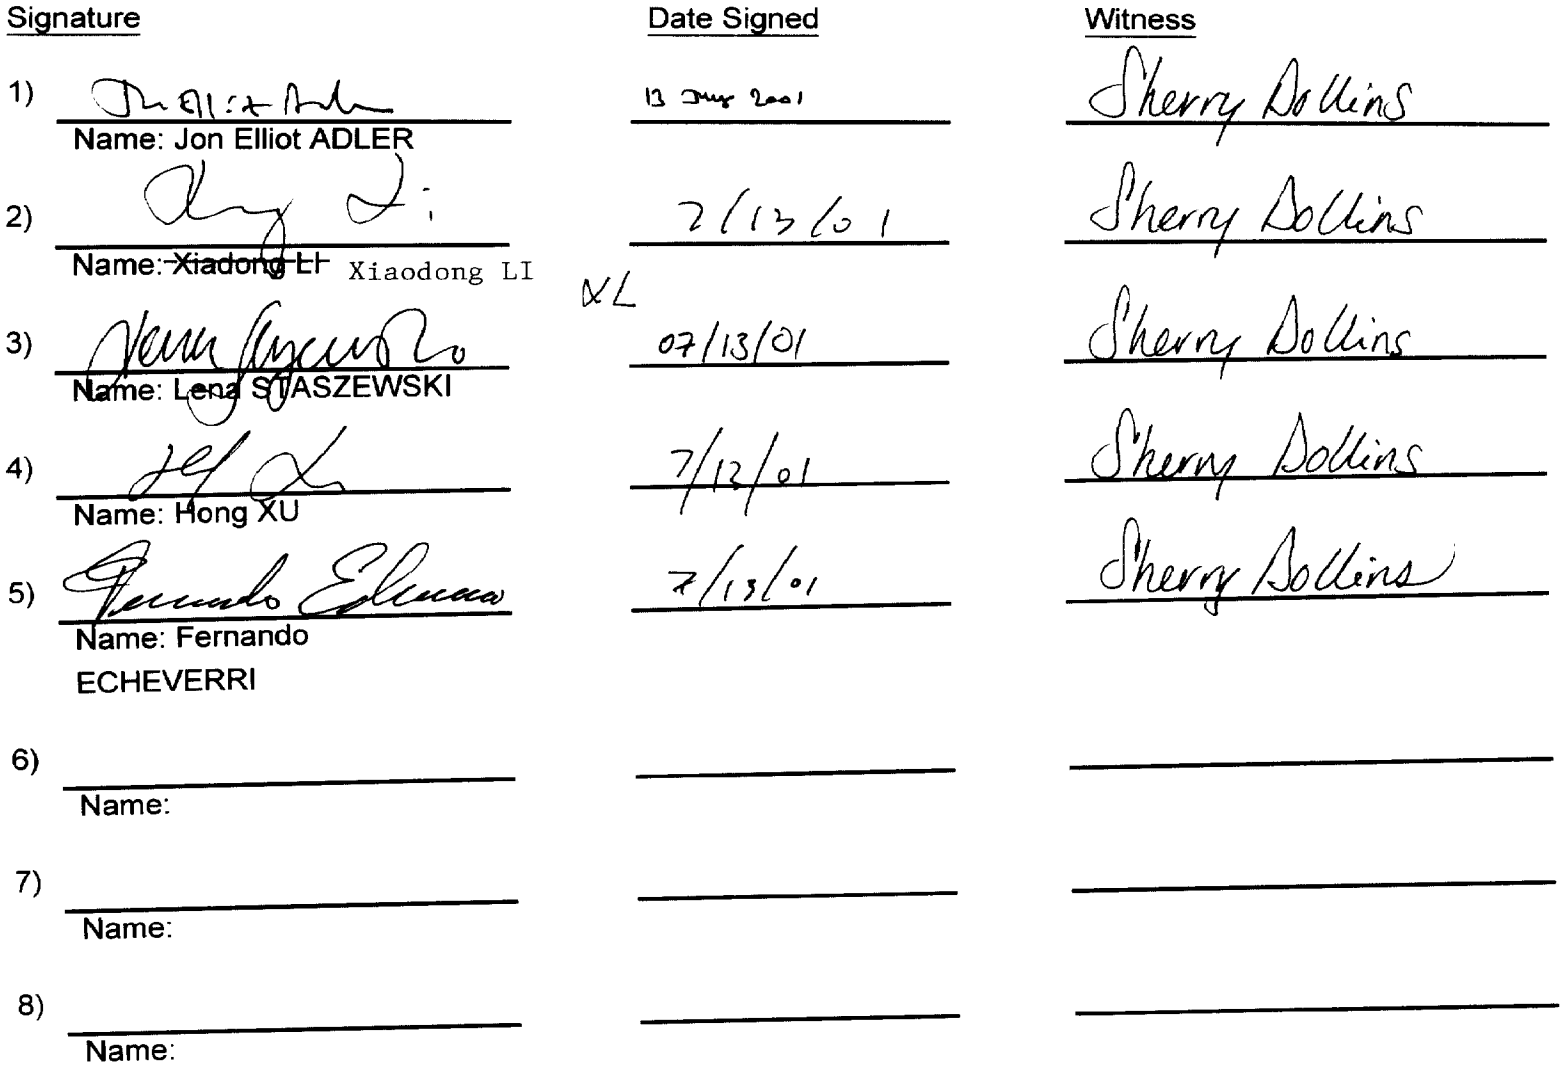 Signature Date Signed Witness
1) Jon Elliot Adler 13 July 2001 Sherry Dollins
Name: Jon Elliot ADLER
2) Li 7/13/01 Sherry Dollins
Name: Xiadong LI Xiaodong LI XL
3) Lena Staszewski 07/13/01 Sherry Dollins
Name: Lena STASZEWSKI
4) 7/13/01 Sherry Dollins
Name: Hong XU
5) Fernando Echeverri 7/13/01 Sherry Dollins
Name: Fernando
ECHEVERRI
6)
Name:
7)
Name:
8)
Name: